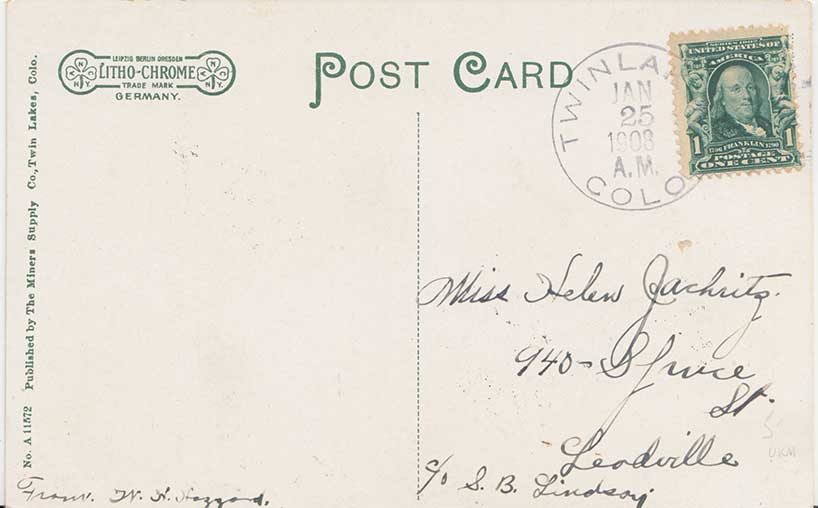 LEIPZIG BERLIN DRESDEN
LITHO-CHROME
TRADE MARK
GERMANY.
N Y
N Y
POST CARD
TWIN LA
JAN
25
1908
A.M.
COLO
SERIES 1902
UNITED STATES OF
AMERICA
1706 FRANKLIN 1790
1 1
POSTAGE
ONE CENT
No. A 11572 Published by The Miners Supply Co., Twin Lakes, Colo.
Miss Helen Jachritz.
940-Spruce
St.
Leadville
c/o S. B. Lindsay
From. W. H. Hazzard.
UKM